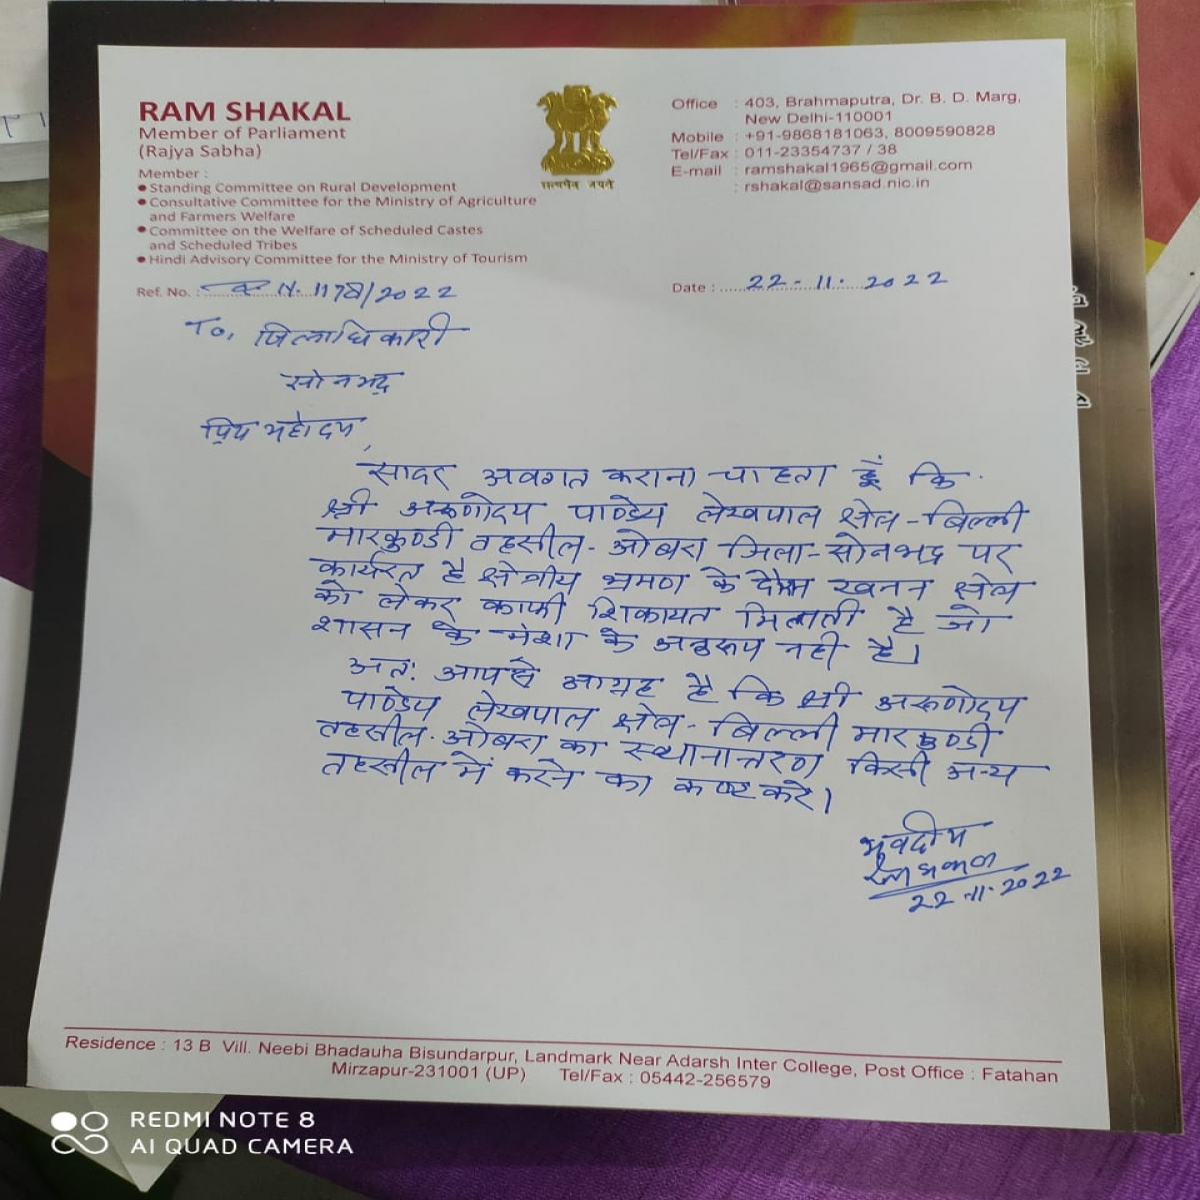 RAM SHAKAL
Member of Parliament
(Rajya Sabha)
Member :
• Standing Committee on Rural Development
• Consultative Committee for the Ministry of Agriculture
and Farmers Welfare
• Committee on the Welfare of Scheduled Castes
and Scheduled Tribes
• Hindi Advisory Committee for the Ministry of Tourism
सत्यमेव जयते
Office : 403, Brahmaputra, Dr. B. D. Marg,
New Delhi-110001
Mobile : +91-9868181063, 8009590828
Tel/Fax : 011-23354737 / 38
E-mail : ramshakal1965@gmail.com
: rshakal@sansad.nic.in
Ref. No. : 1178/2022
Date : 22-11-2022
To, जिलाधिकारी
सोनभद्र
प्रिय महोदय,
सादर अवगत कराना चाहता हूँ कि
श्री अरूणोदय पाण्डेय लेखपाल क्षेत्र-बिल्ली
मारकुण्डी तहसील-ओबरा जिला-सोनभद्र पर
कार्यरत है क्षेत्रीय भ्रमण के खनन क्षेत्र
को लेकर काफी शिकायत मिलती है जो
शासन के मंशा के अनुरूप नही है।
अतः आपसे आग्रह है कि श्री अरूणोदय
पाण्डेय लेखपाल क्षेत्र-बिल्ली मारकुण्डी
तहसील-ओबरा का स्थानान्तरण किसी अन्य
तहसील में करने का कष्ट करे।
भवदीय
22-11-2022
Residence : 13 B Vill. Neebi Bhadauha Bisundarpur, Landmark Near Adarsh Inter College, Post Office : Fatahan
Mirzapur-231001 (UP) Tel/Fax : 05442-256579
REDMI NOTE 8
AI QUAD CAMERA